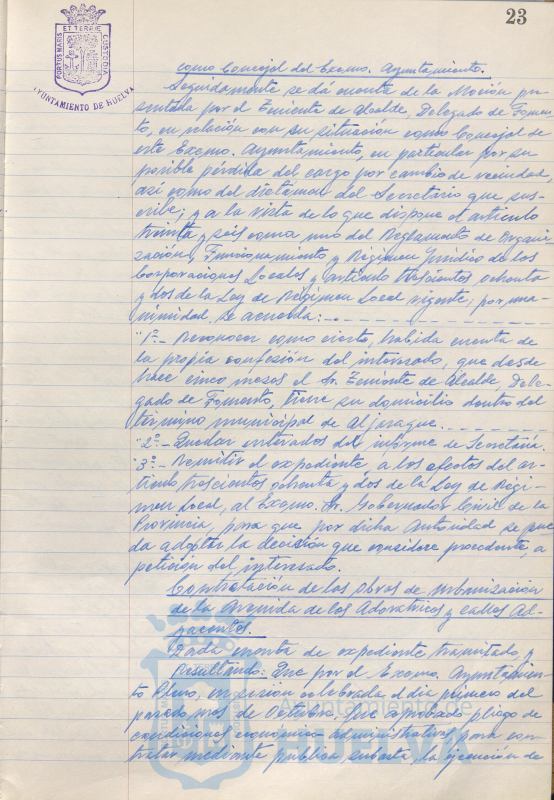 23
PORTUS MARIS ET TERRAE CUSTODIA
AYUNTAMIENTO DE HUELVA
como Concejal del Excmo. Ayuntamiento.
Seguidamente se dá cuenta de la Moción pre-
sentada por el Teniente de Alcalde, Delegado de Fomen-
to, en relación con su situación como Concejal de
este Excmo. Ayuntamiento, en particular por su
posible pérdida del cargo por cambio de vecindad,
así como del dictamen del Secretario que sus-
cribe; y a la vista de lo que dispone el artículo
treinta y seis coma uno del Reglamento de Organi-
zación, Funcionamiento y Régimen Jurídico de las
Corporaciones Locales y artículo trescientos ochenta
y dos de la Ley de Régimen Local vigente, por una-
nimidad se acuerda:
"1º.- Reconocer como cierto, habida cuenta de
la propia confesión del interesado, que desde
hace cinco meses el Sr. Teniente de Alcalde, Dele-
gado de Fomento, tiene su domicilio dentro del
término municipal de Aljaraque.
"2º.- Quedar enterados del informe de Secretaría.
"3º.- Remitir el expediente a los efectos del ar-
tículo trescientos ochenta y dos de la Ley de Régi-
men Local, al Excmo. Sr. Gobernador Civil de la
Provincia, para que por dicha Autoridad se pue-
da adoptar la decisión que considere procedente, a
petición del interesado.
Contratación de las obras de urbanización
de la Avenida de los Adoratrices y calles Ad-
yacentes.
Dada cuenta de expediente tramitado y
Resultando: Que por el Excmo. Ayuntamien-
to Pleno, en sesión celebrada el día primero del
pasado mes de Octubre, fue aprobado pliego de
condiciones económico-administrativas para con-
tratar mediante pública subasta, la ejecución de
Ayuntamiento de
HUELVA